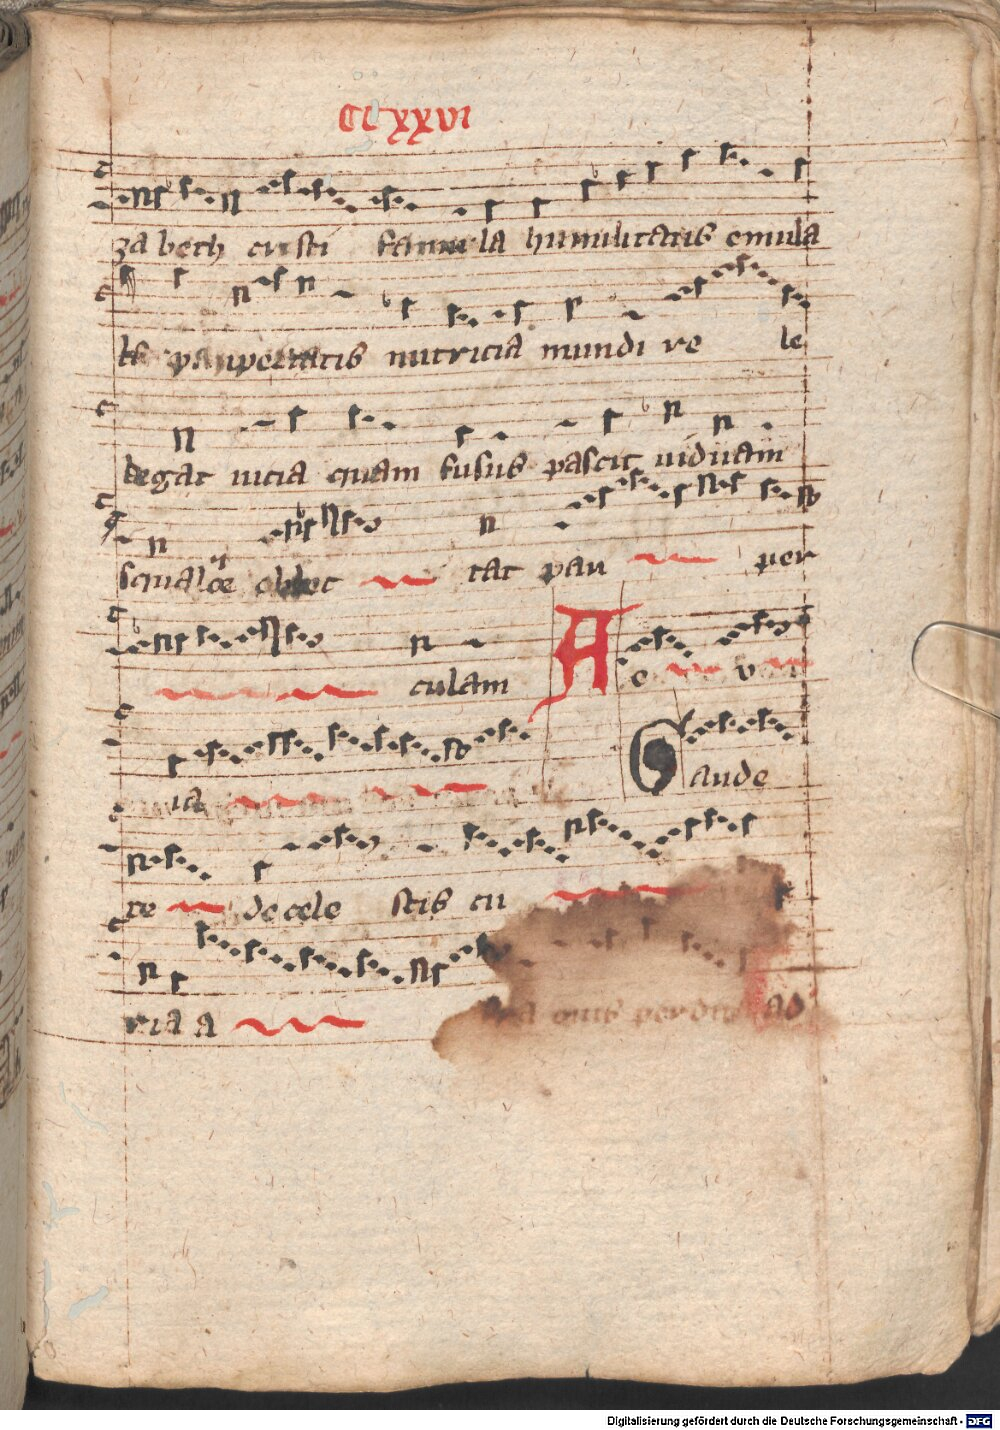 CLXXVI
za beth cristi famula humilitatis emula
paupertatis nutricia mundi re le
legat vicia quam fusus pascit viduam
squalor oblec tat pau per
culam A e v
ia Gaude
te de cele stis cu
ria a quis perdit ad
Digitalisierung gefördert durch die Deutsche Forschungsgemeinschaft - DFG